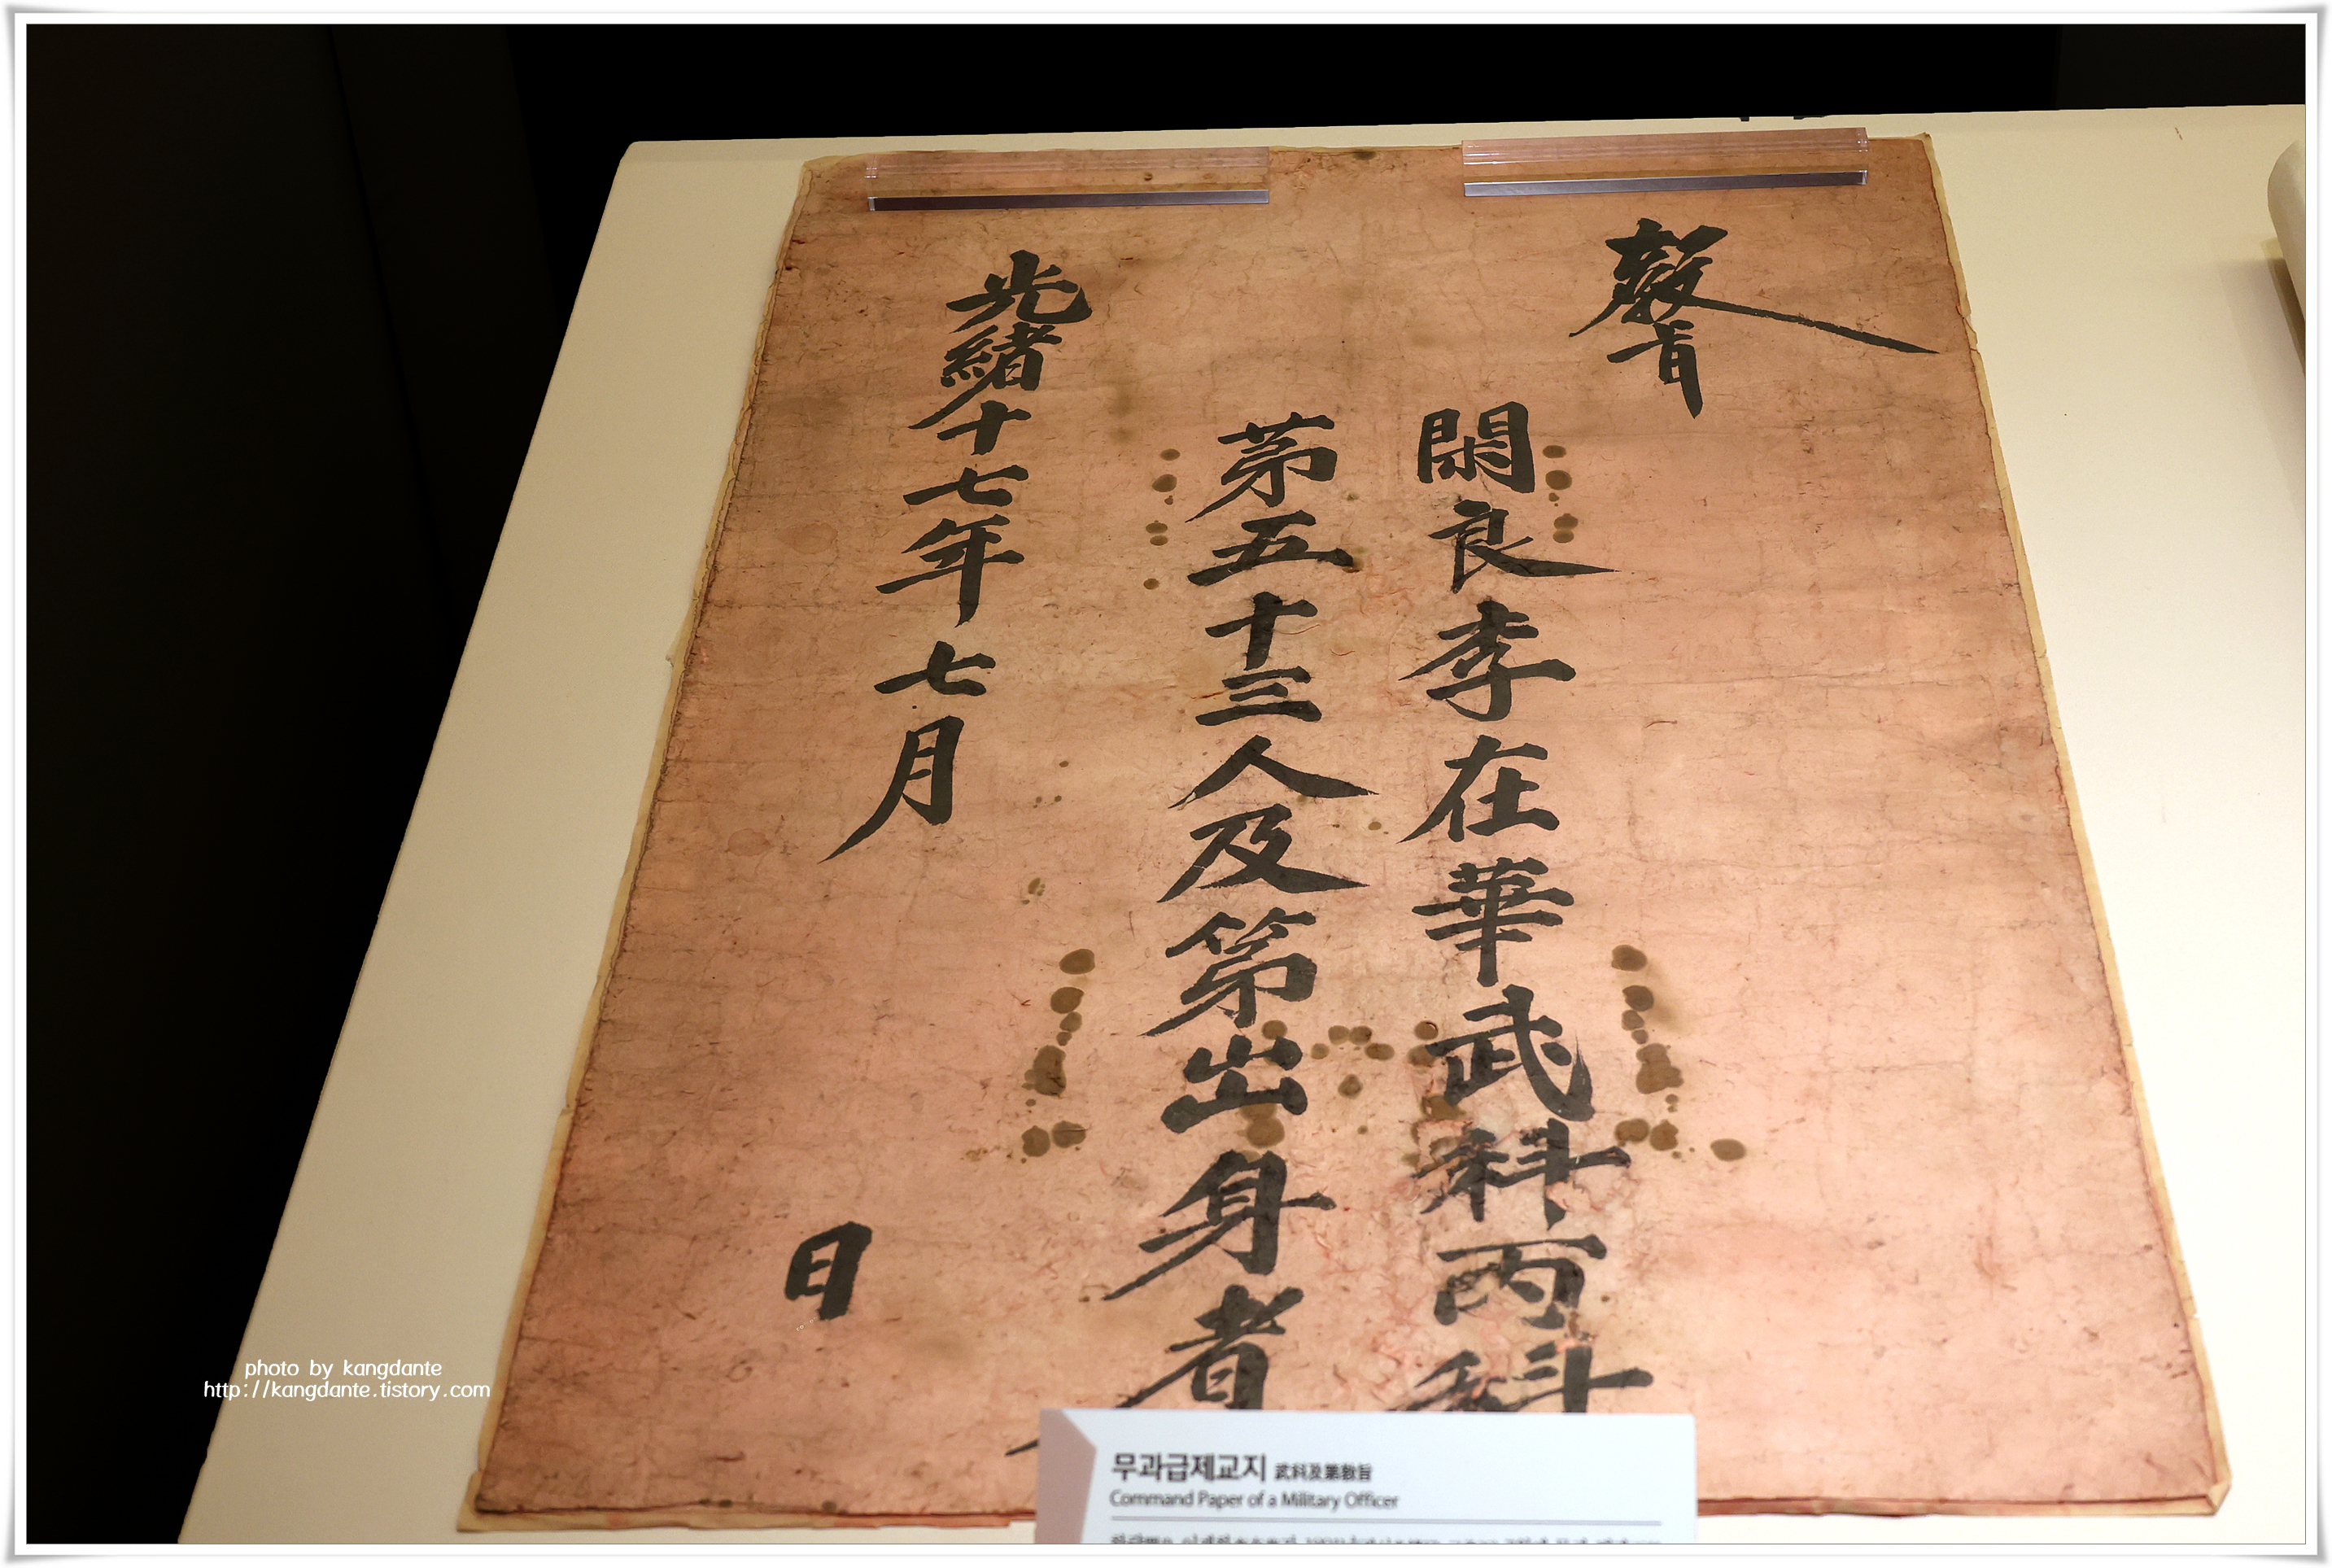 敎旨
閑良李在華武科丙科
第五十三人及第出身者
光緒十七年七月 日
무과급제교지 武科及第敎旨
Command Paper of a Military Officer
photo by kangdante
http://kangdante.tistory.com